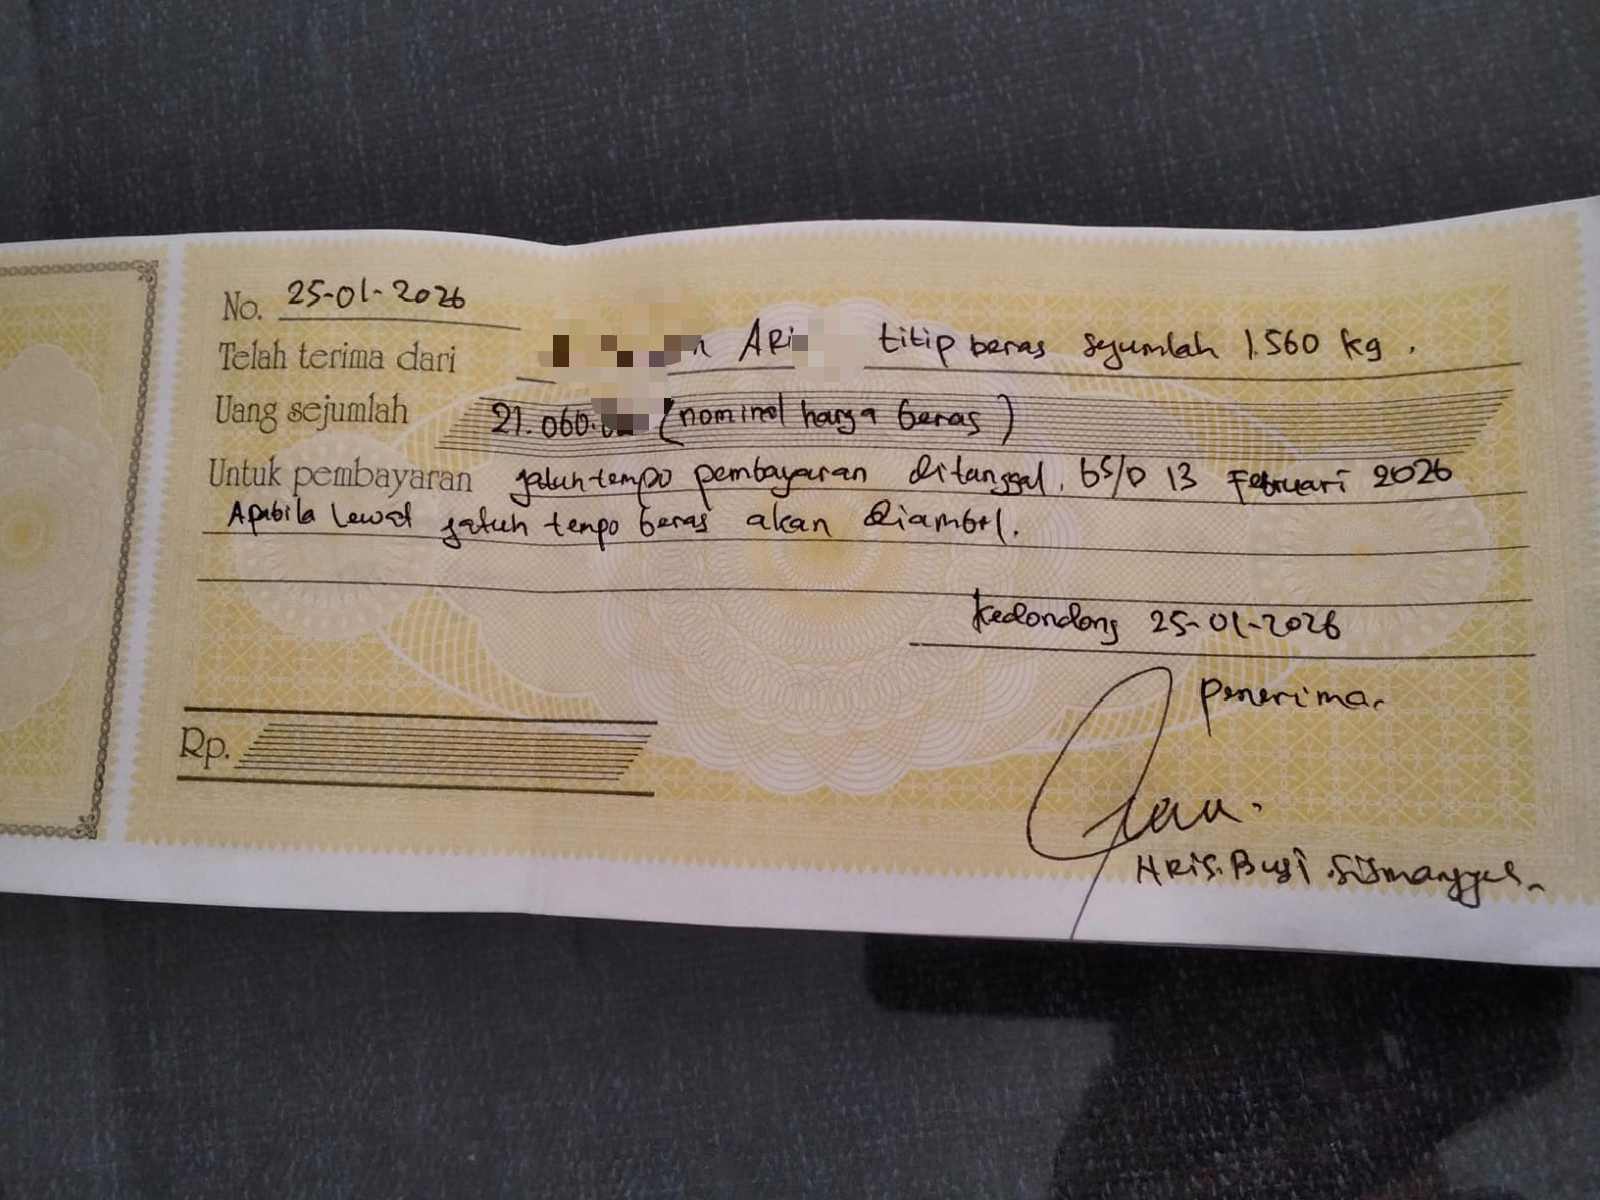 No. 25-01-2026
Telah terima dari ARi titip beras sejumlah 1.560 kg.
Uang sejumlah 21.060. (nominal harga beras)
Untuk pembayaran jatuh tempo pembayaran ditanggal. 13 Februari 2026
Apabila lewat jatuh tempo beras akan diambil.
Kedondong 25-01-2026
Penerima.
Rp.